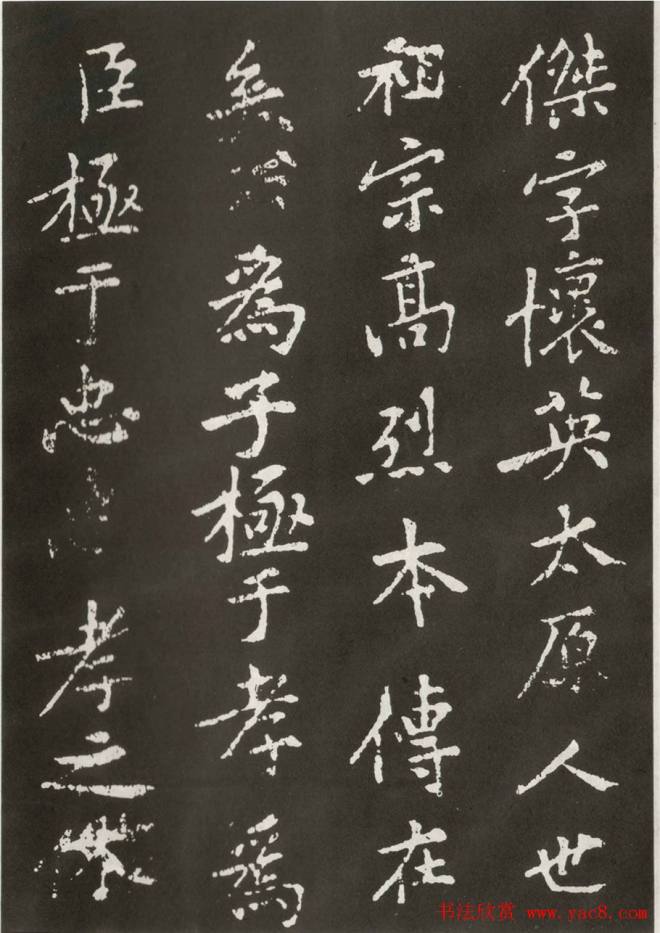 傑字懷英太原人也
祖宗高烈本傳在
矣公爲子極于孝爲
臣極于忠孝之
书法欣赏 www.yac8.com